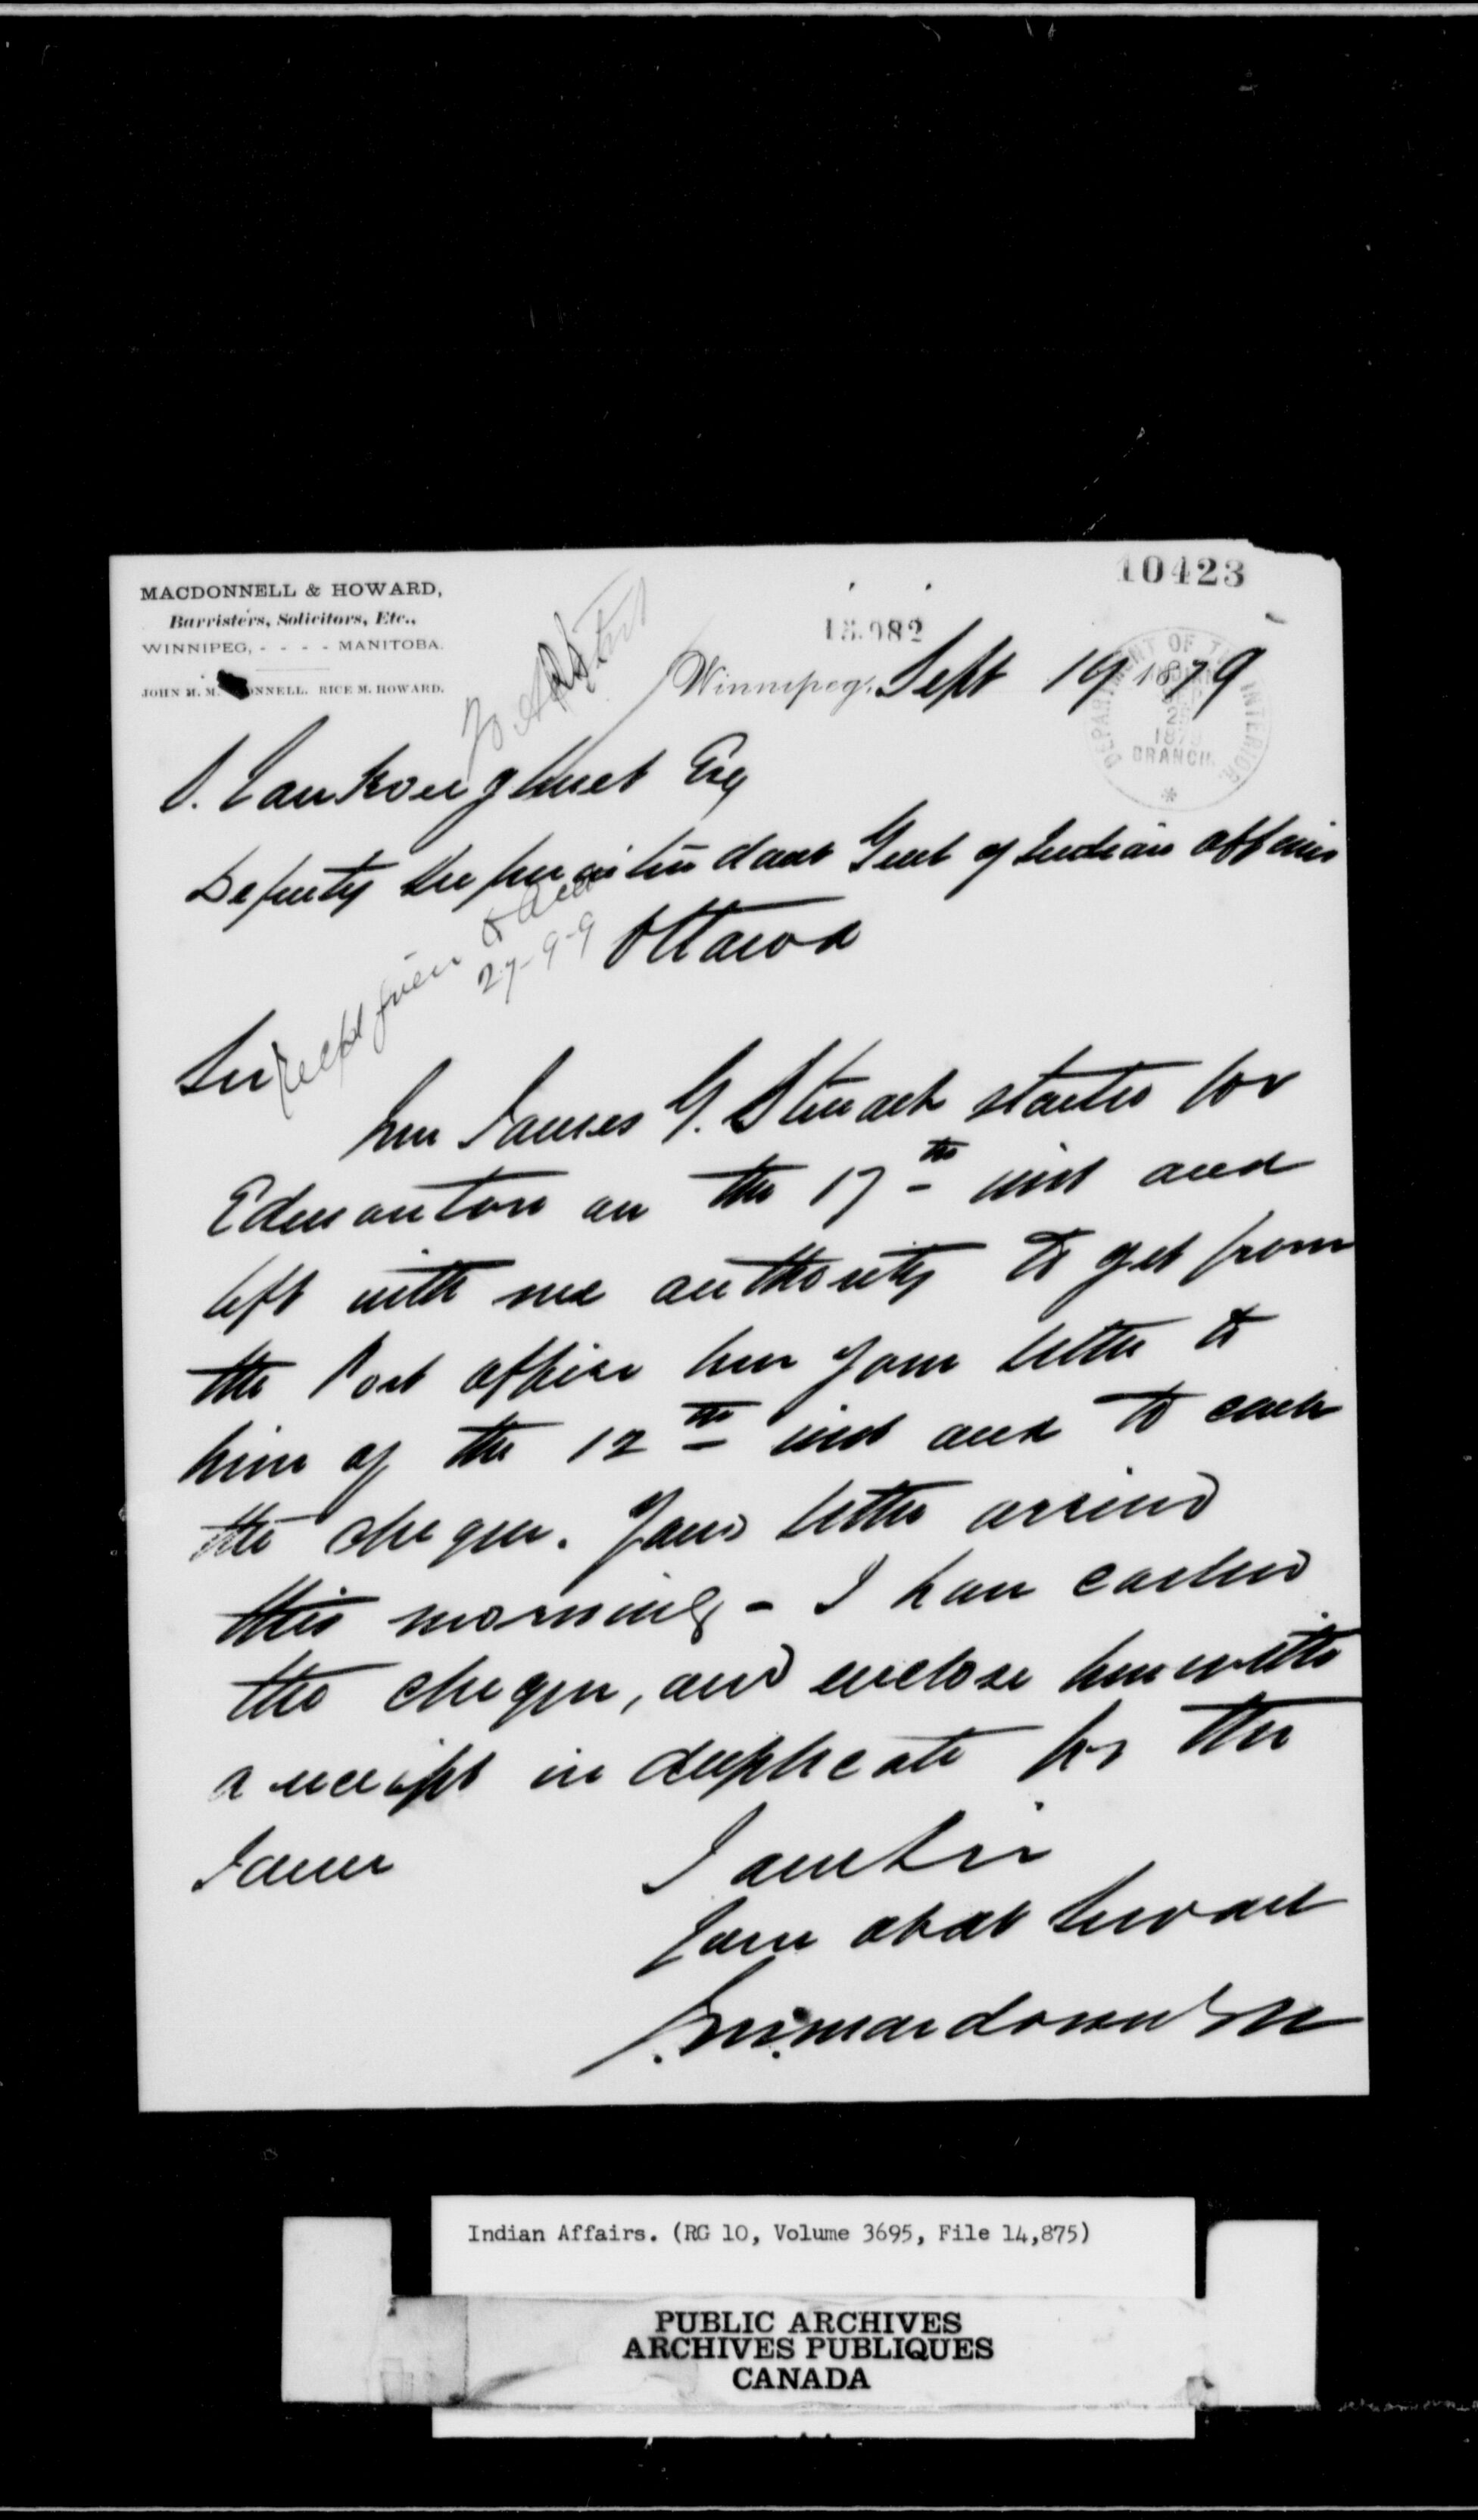 10423
MACDONNELL & HOWARD,
Barristers, Solicitors, Etc.,
WINNIPEG, - - - - MANITOBA.
JOHN M. M. ONNELL. RICE M. HOWARD.
Winnipeg, Sept 19 1879
DEPARTMENT OF THE INTERIOR.
BRANCH
L. VanKoughnet Esq
Deputy Superintendant Genl of Indian Affairs
Ottawa
27-9-9
Sir
Mr James G. Stewart started for
Edmonton on the 17th inst and
left with me authority to get from
the Post office here your letter to
him of the 12th inst and to cash
the cheque. Your letter arrived
this morning - I have cashed
the cheque, and enclose herewith
a receipt in duplicate for the
same
I am Sir
Your obdt Servant
J. M. Macdonnell
Indian Affairs. (RG 10, Volume 3695, File 14,875)
PUBLIC ARCHIVES
ARCHIVES PUBLIQUES
CANADA